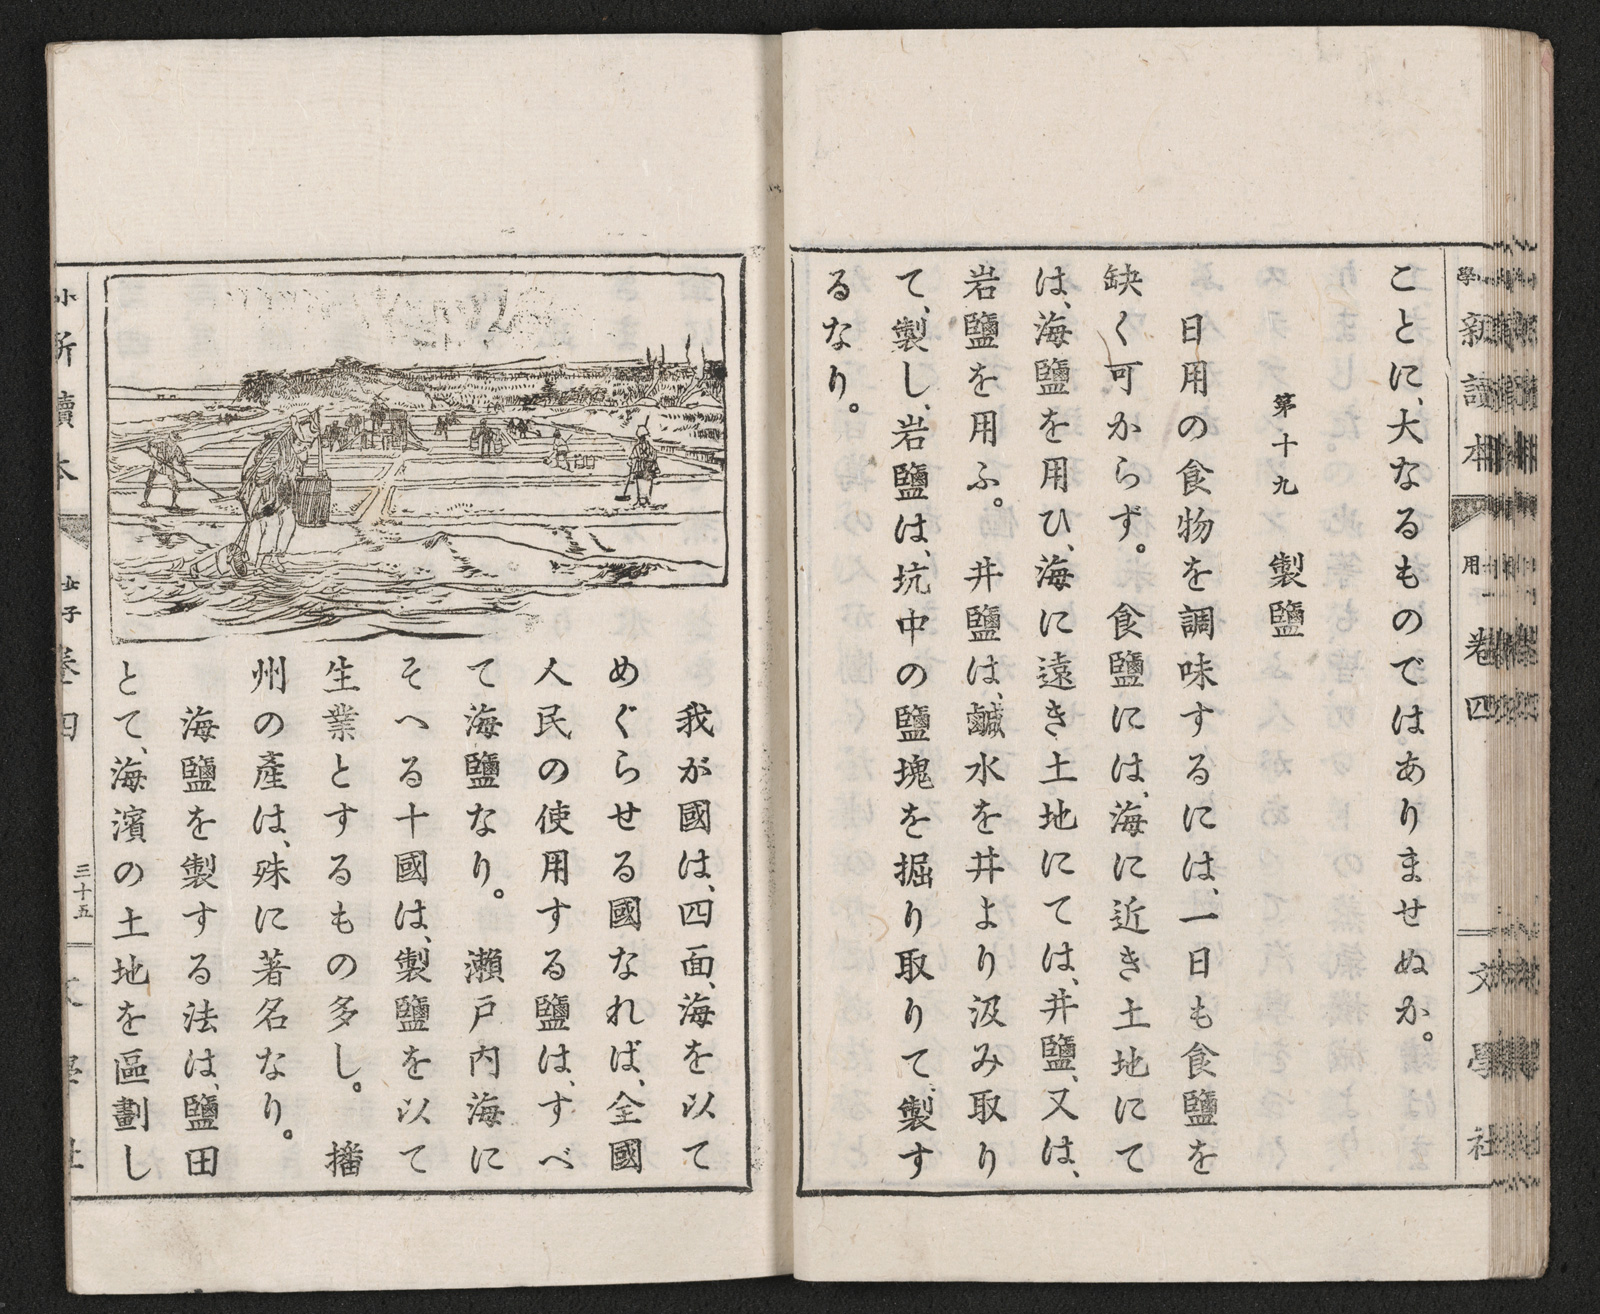 ことに、大なるものではありませぬか。
第十九 製鹽
日用の食物を調味するには、一日も食鹽を
缺く可からず。食鹽には、海に近き土地にて
は、海鹽を用ひ、海に遠き土地にては、井鹽、又は、
岩鹽を用ふ。井鹽は、鹹水を井より汲み取り
て、製し、岩鹽は、坑中の鹽塊を掘り取りて、製す
るなり。
我が國は、四面、海を以て
めぐらせる國なれば、全國
人民の使用する鹽は、すべ
て海鹽なり。瀨戸内海に
そへる十國は、製鹽を以て
生業とするもの多し。播
州の產は、殊に著名なり。
海鹽を製する法は、鹽田
とて、海濱の土地を區劃し
小新讀本 女子 卷四 三十五 文學社
學 新讀本 用 卷四 文學社